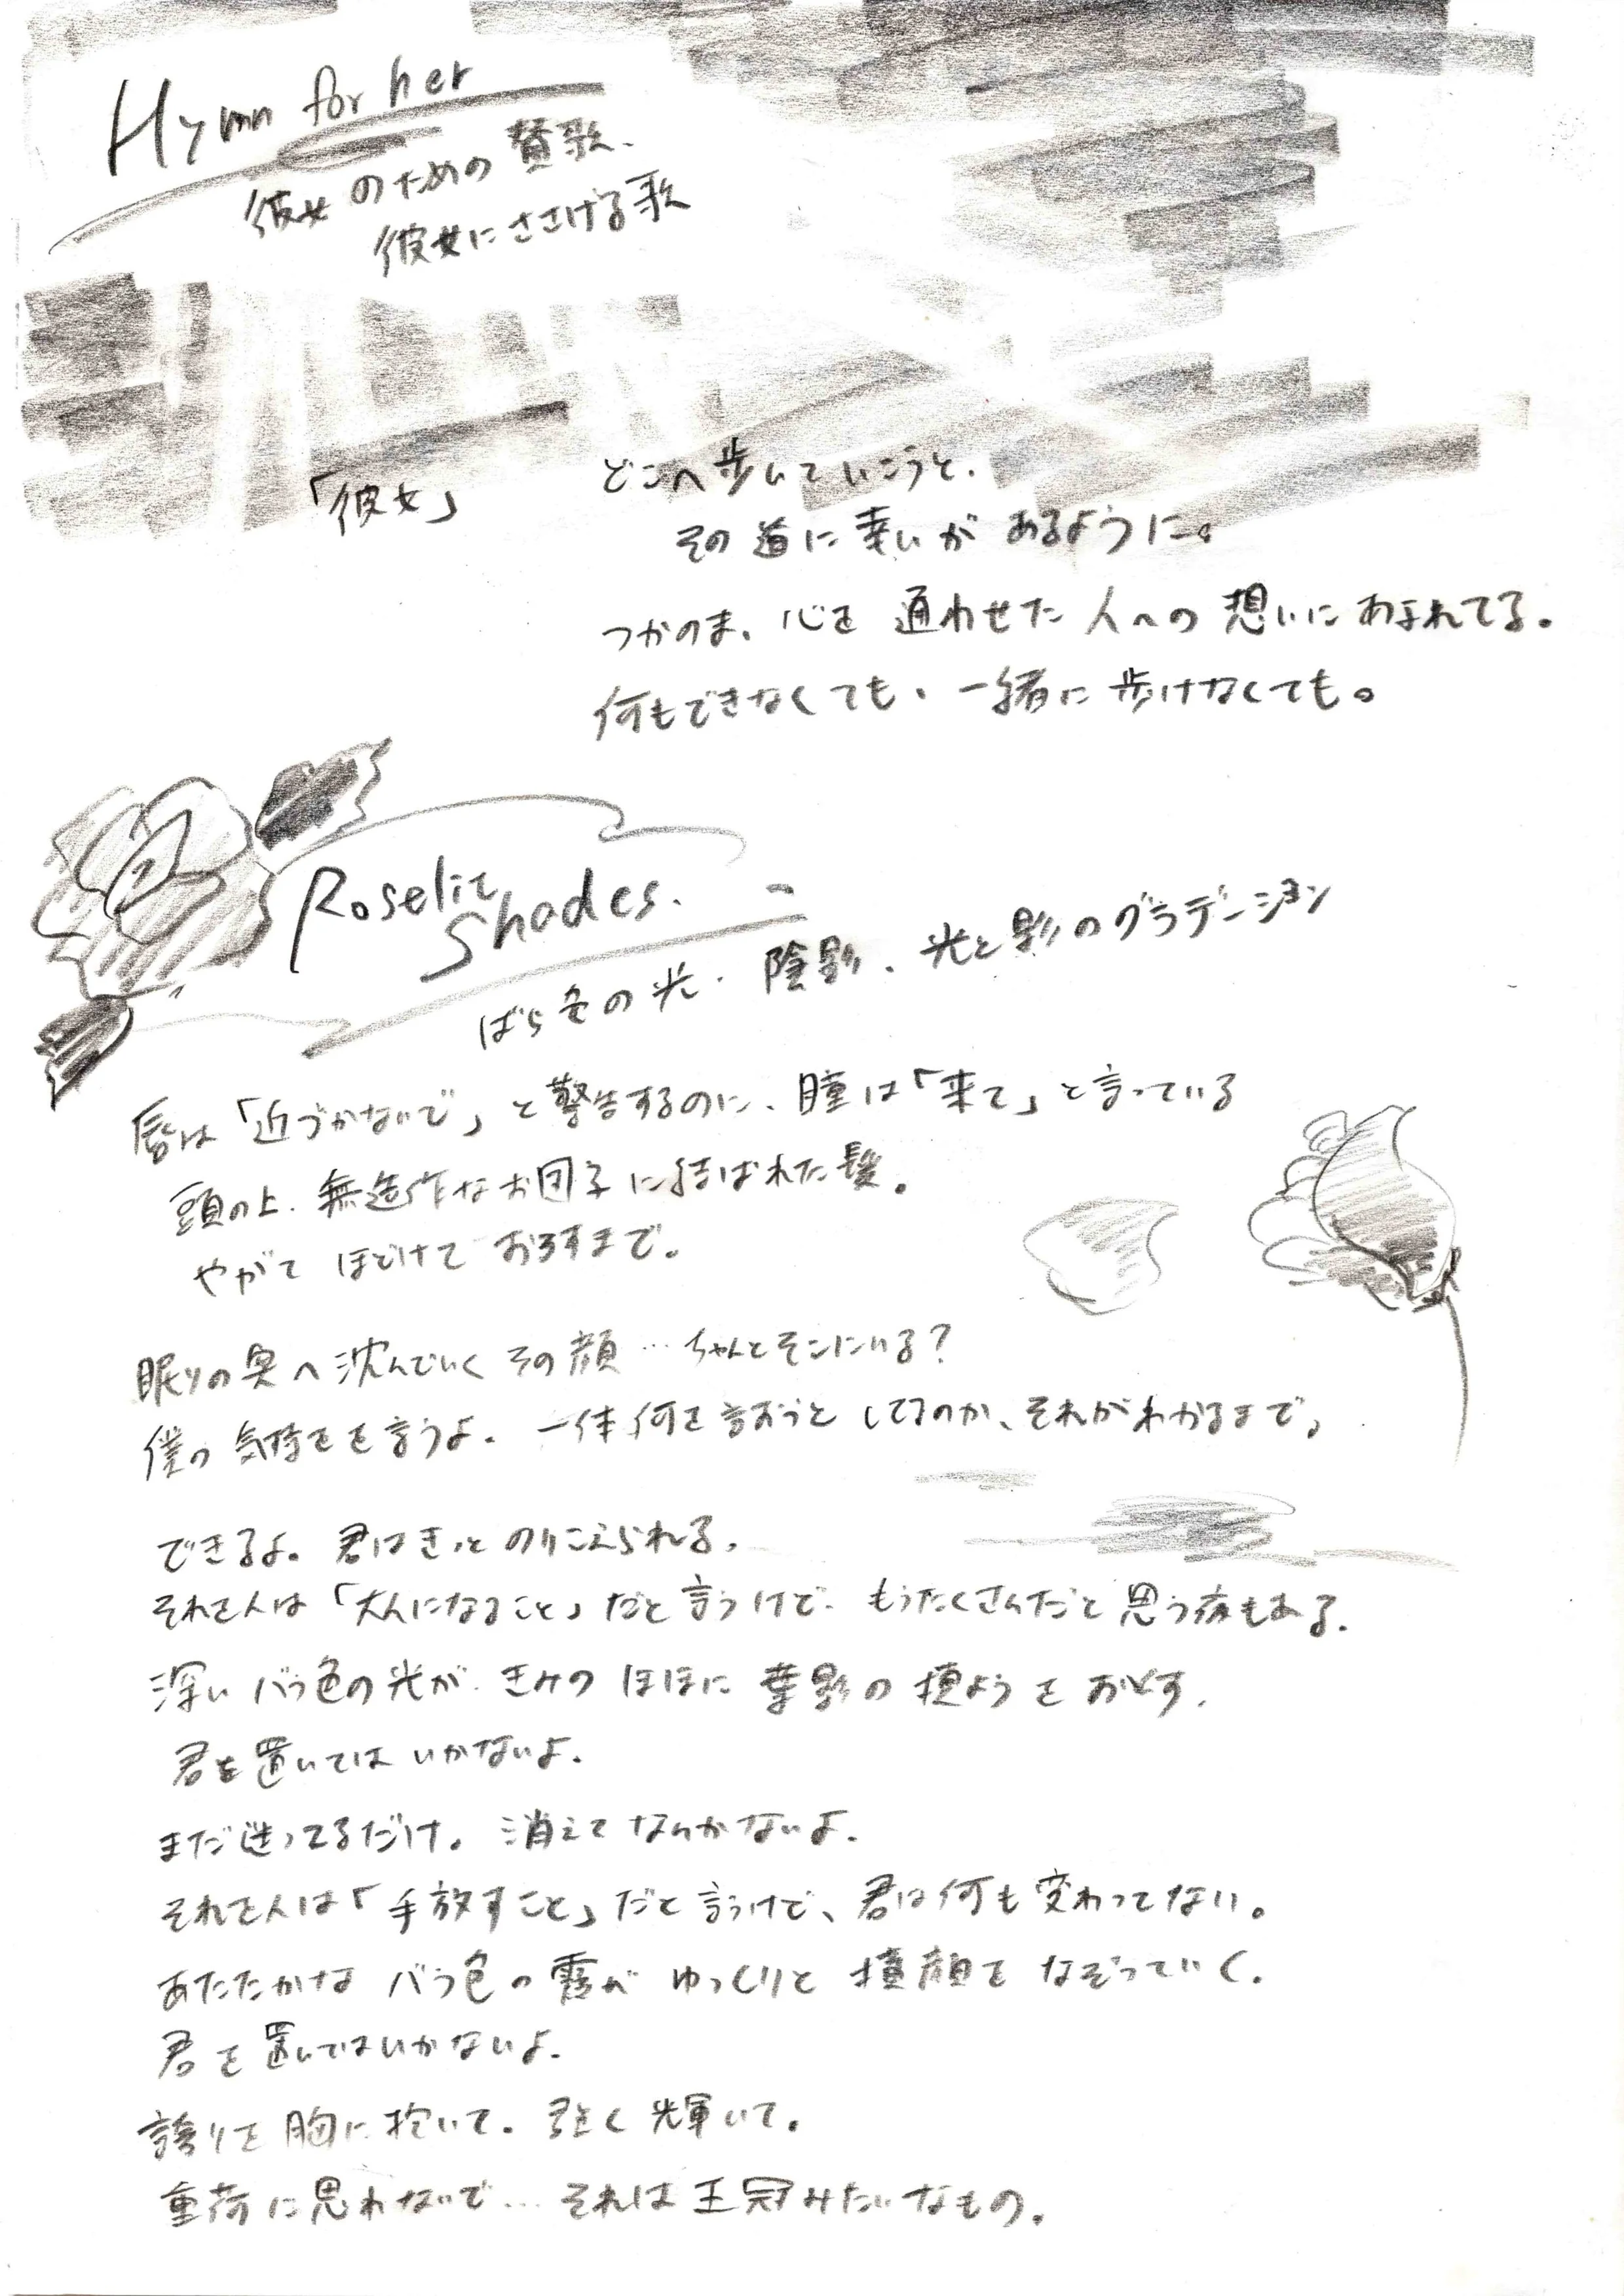 Hymn for her
彼女のための賛歌、
彼女にささげる歌
「彼女」
どこへ歩いていこうと、
その道に幸いがあるように。
つかのま、心を通わせた人への想いにあふれてる。
何もできなくても、一緒に歩けなくても。
Roselit
Shades.
ばら色の光、陰影、光と影のグラデーション
唇は「近づかないで」と警告するのに、瞳は「来て」と言っている
頭の上、無造作なお団子に結ばれた髪。
やがてほどけておろすまで。
眠りの奥へ沈んでいくその顔…ちゃんとそこにいる?
僕の気持を言うよ、一体何を言おうとしてるのか、それがわかるまで。
できるよ。君はきっとのりこえられる。
それを人は「大人になること」だと言うけど、もうたくさんだと思う夜もある。
深いバラ色の光が、きみのほほに葉影の模ようをおとす。
君を置いてはいかないよ。
まだ迷ってるだけ。消えてなんかないよ。
それを人は「手放すこと」だと言うけど、君は何も変わってない。
あたたかなバラ色の靄がゆっくりと横顔をなぞっていく。
君を置いてはいかないよ。
誇りを胸に抱いて。強く輝いて。
重荷に思わないで…それは王冠みたいなもの。